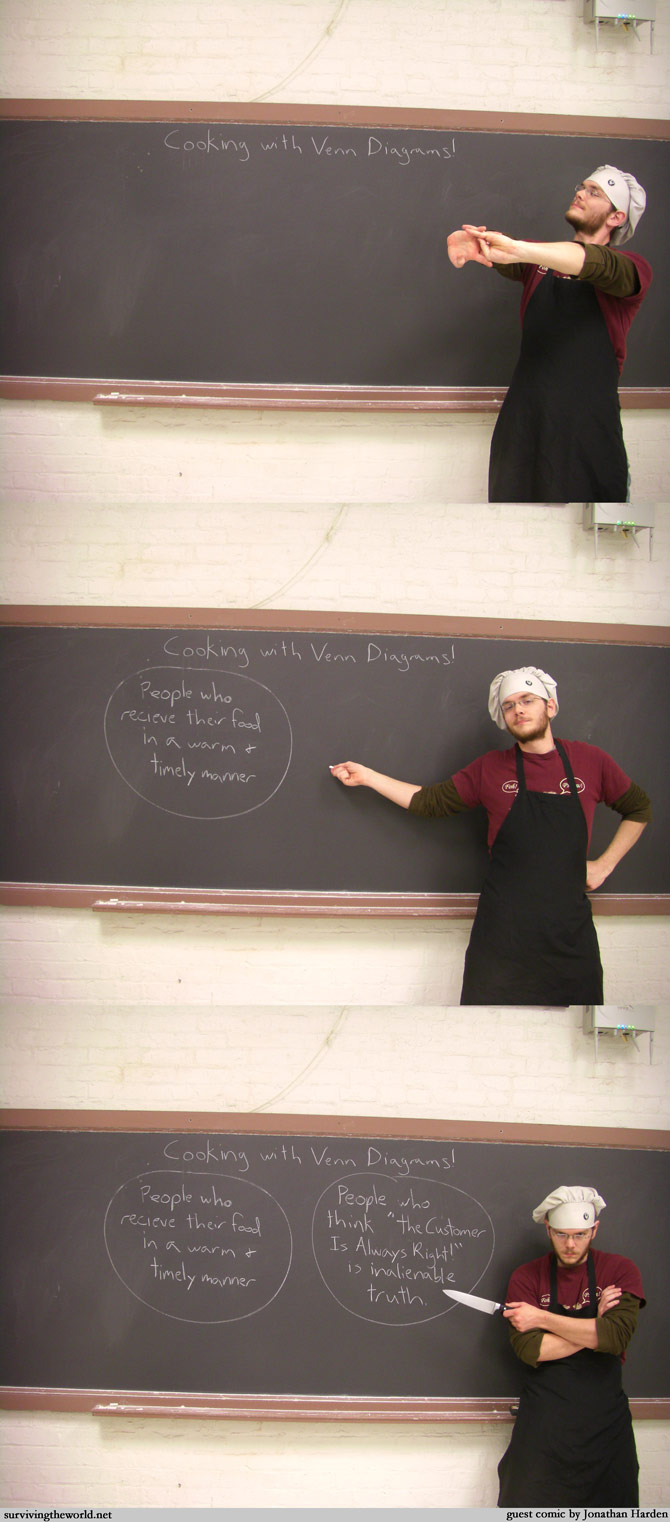 Cooking with Venn Diagrams!
Cooking with Venn Diagrams!
People who
recieve their food
in a warm &
timely manner
Fish!
Cooking with Venn Diagrams!
People who
recieve their food
in a warm &
timely manner
People who
think "the Customer
Is Always Right!"
is inalienable
truth.
survivingtheworld.net
guest comic by Jonathan Harden